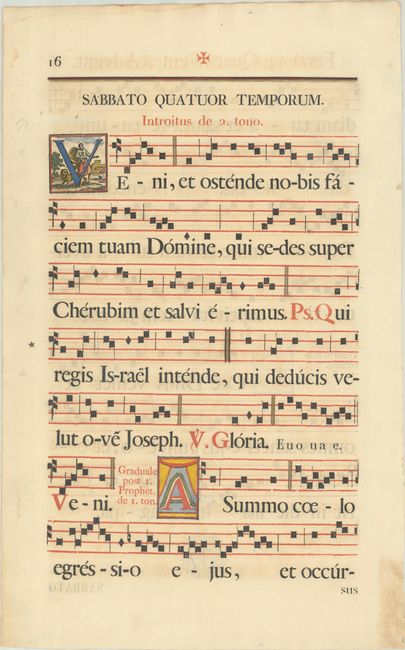 16 ✠
SABBATO QUATUOR TEMPORUM.
Introitus de 2. tono.
VE - ni, et osténde no-bis fá -
ciem tuam Dómine, qui se-des super
Chérubim et salvi é - rimus. Ps. Qui
regis Is-raël inténde, qui dedúcis ve-
lut o-vẽ Joseph. ℣. Glória. Euo ua e.
Ve - ni.
Graduale
post 1.
Prophet.
de 1. ton.
A Summo cœ - lo
egrés - si-o e - jus, et occúr-
sus